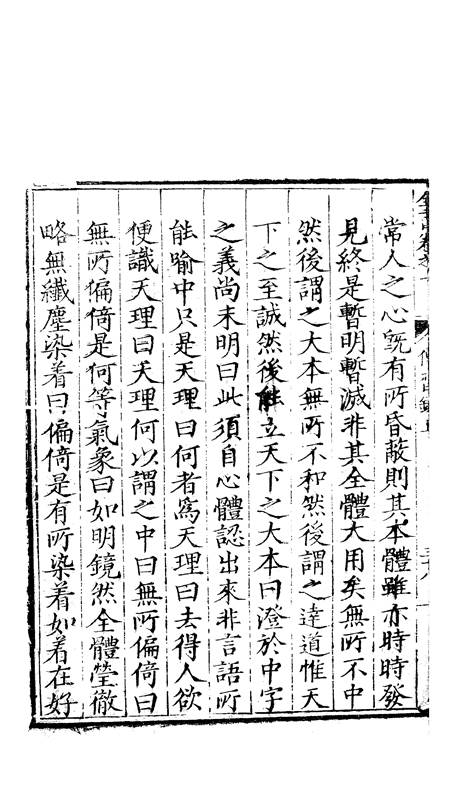 常人之心既有所昏蔽則其本體雖亦時時發
見終是暫明暫滅非其全體大用矣無所不中
然後謂之大本無所不和然後謂之達道惟天
下之至誠然後能立天下之大本曰澄於中字
之義尚未明曰此須自心體認出來非言語所
能喻中只是天理曰何者爲天理曰去得人欲
便識天理曰天理何以謂之中曰無所偏倚曰
無所偏倚是何等氣象曰如明鏡然全體瑩徹
略無纖塵染着曰偏倚是有所染着如着在好